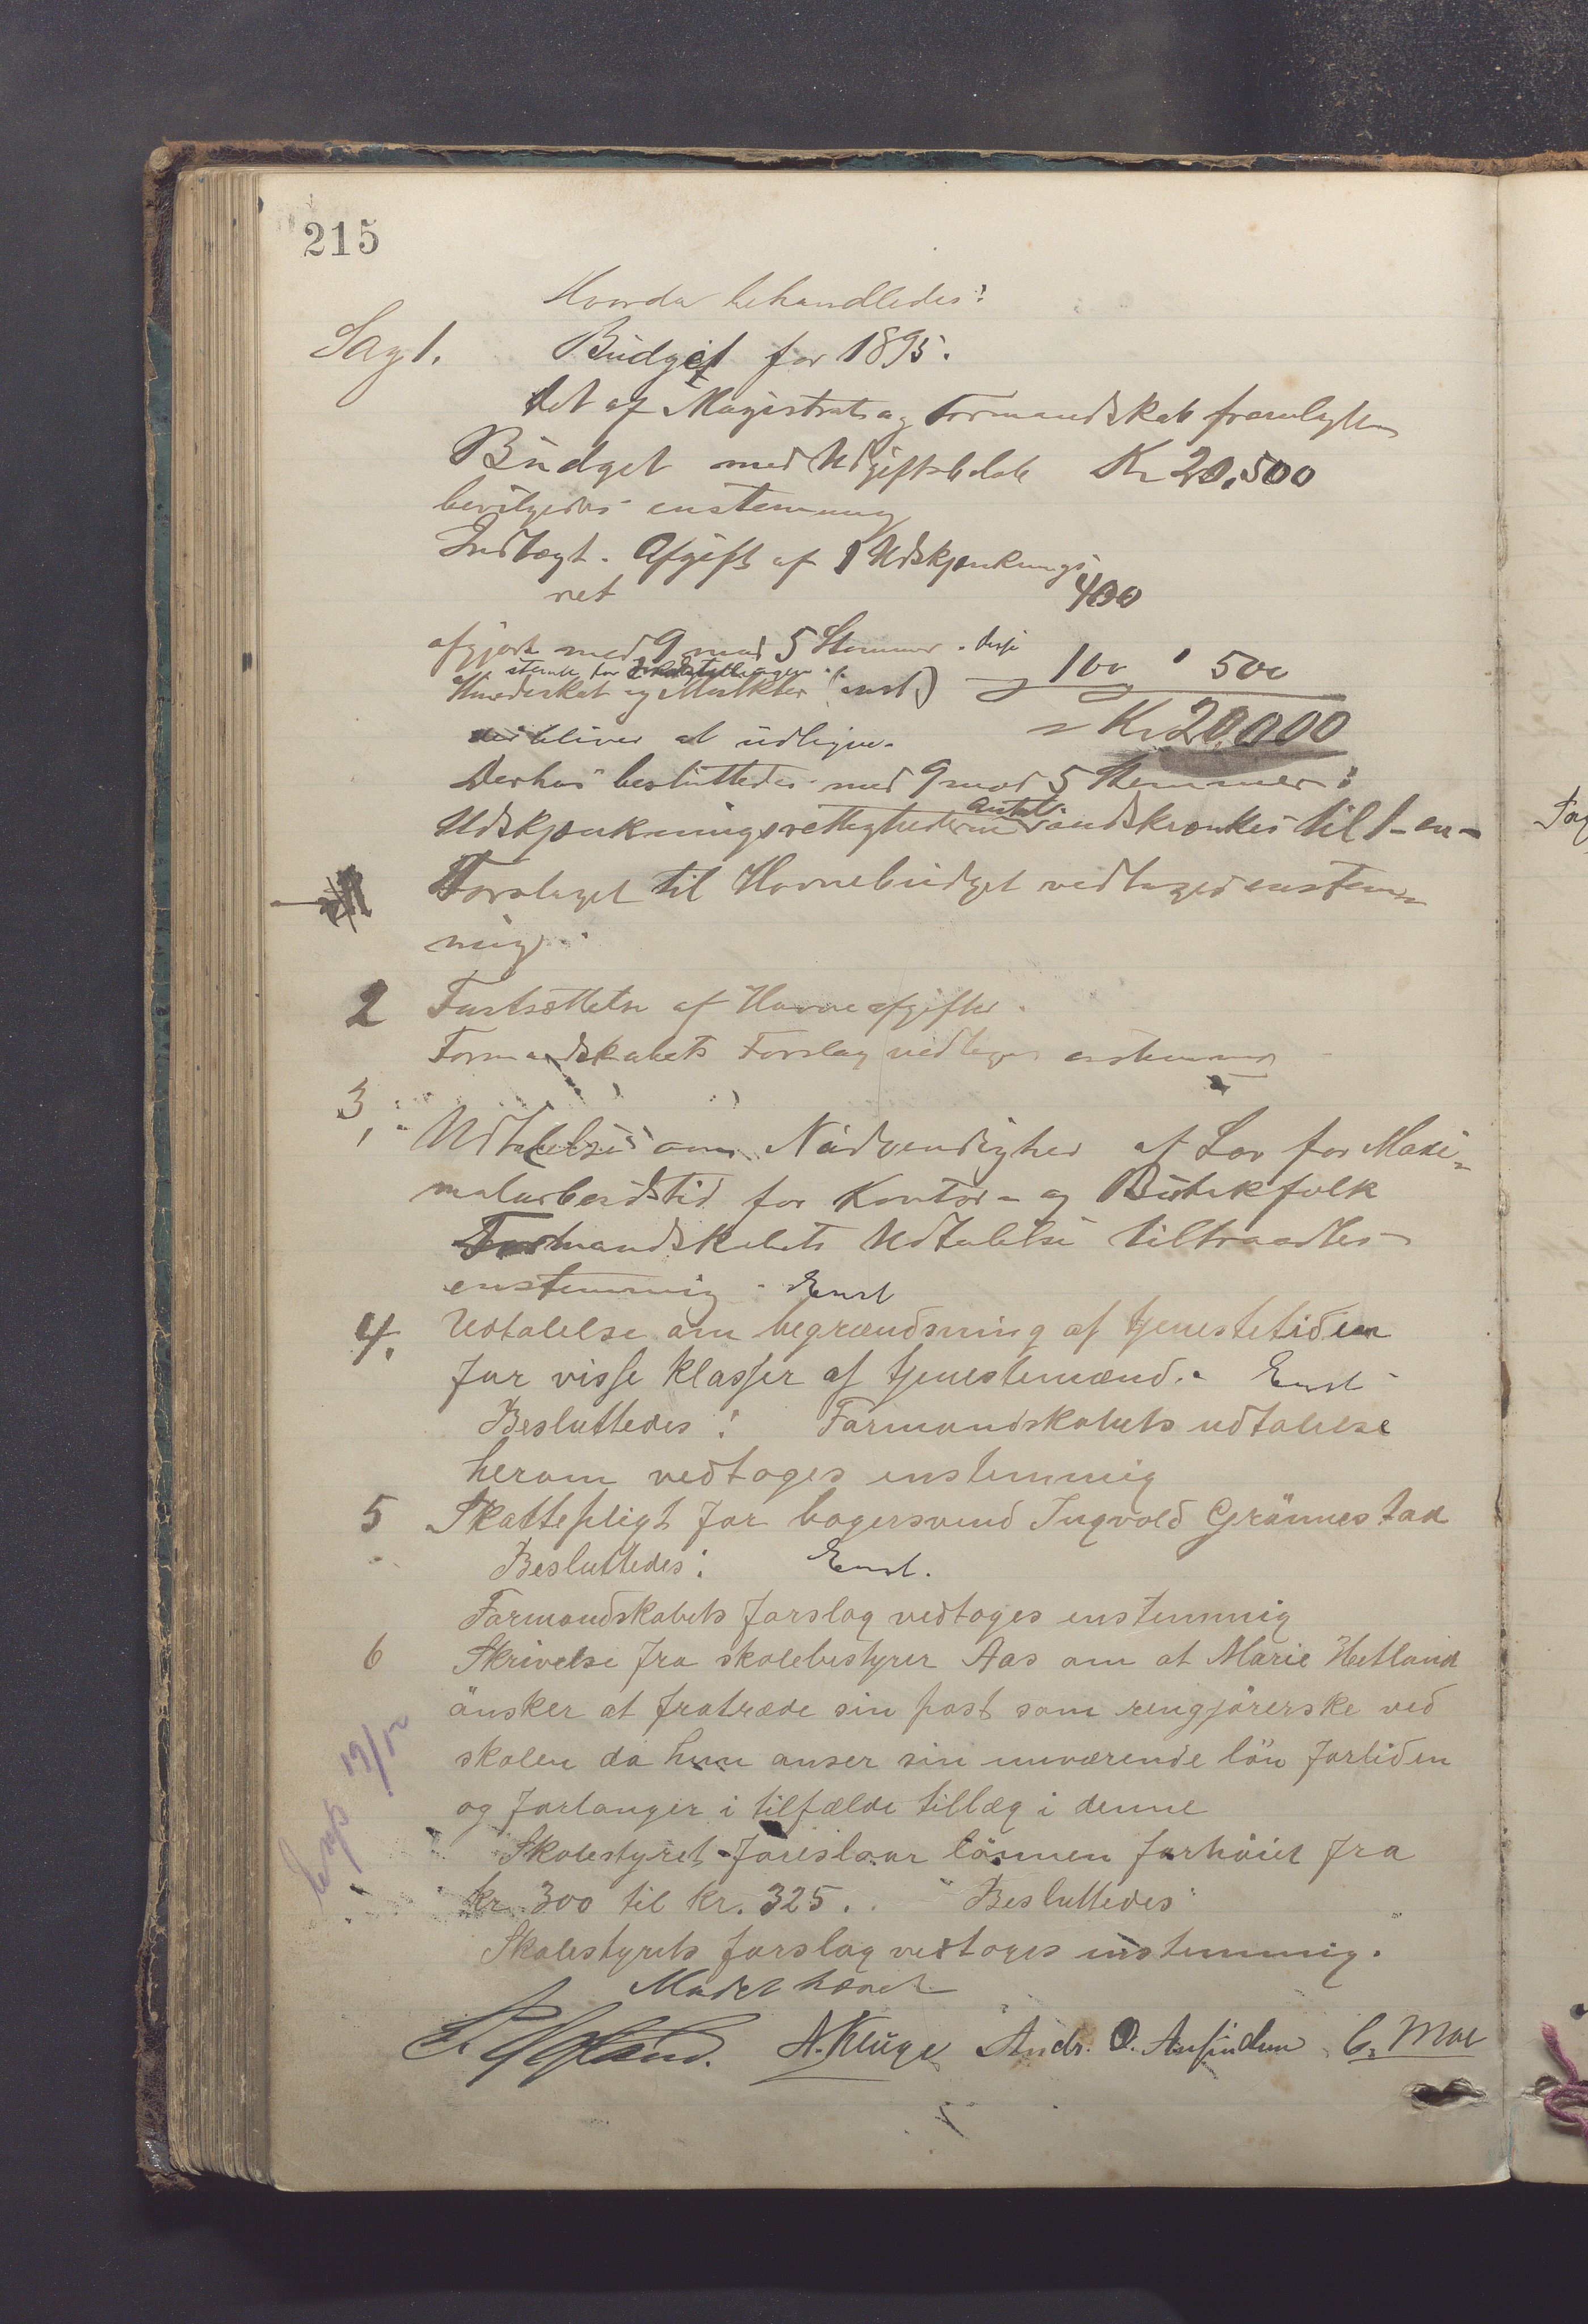 215
Hvorda behandledes:
Sag 1. Budget for 1895.
Det af Magistrat og Formandskab fremlagte
Budget med Udgiftsbeløb Kr 20.500
bevilgedes enstemmig
Indtægt. Afgift af 1 Udskjænknings
ret 400
afgjort med 9 mod 5 Stemmer. disse
stemte for
Hundeskat og (enst.) 100 500
Kr 20,000
bliver at udligne.
Derhos besluttedes med 9 mod 5 Stemmer:
Antal
Udskjænkningsrettighederne indskrænkes til 1 - en -
Forslaget til Havnebudget vedtoges enstem=
mig.
2 Fastsættelse af Havneafgifter.
Formandskabets Forslag vedtoges enstemmig
3, Udtalelse om Nödvendighed af Lov for Maxi=
malarbeidstid for Kontor- og Butikfolk
Formandskabets Udtalelse tiltraadtes
enstemmig. Enst
4. Udtalelse om begrændsning af tjenestetiden
for visse klasser af tjenestemænd. Enst
Besluttedes: Formandskabets udtalelse
herom vedtoges enstemmig
5 Skattepligt for bagersvend Ingvald Grönnestad
Besluttedes: Enst.
Formandskabets forslag vedtoges enstemmig
6 Skrivelse fra skolebestyrer Aas om at Marie Hetland
önsker at fratræde sin post som rengjörerske ved
skolen da hun anser sin nuværende lön forliden
og forlanger i tilfælde tillæg i denne
Exp 12/12
Skolestyret foreslaar lönnen forhöiet fra
kr. 300 til kr. 325. Besluttedes
Skolestyrets forslag vedtoges enstemmig.
Mödet hævet
A. Kluge Andr. O. C. Moe